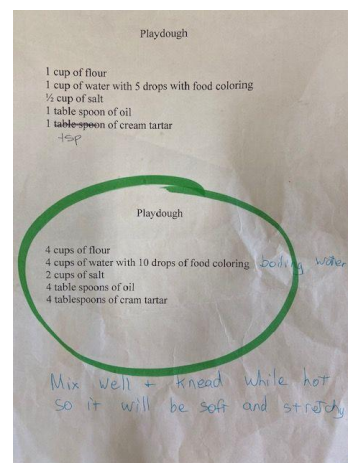 Playdough
1 cup of flour
1 cup of water with 5 drops with food coloring
½ cup of salt
1 table spoon of oil
1 table spoon of cream tartar
tsp
Playdough
4 cups of flour
4 cups of water with 10 drops of food coloring boiling water
2 cups of salt
4 table spoons of oil
4 tablespoons of cram tartar
Mix well + Knead while hot
so it will be soft and stretchy